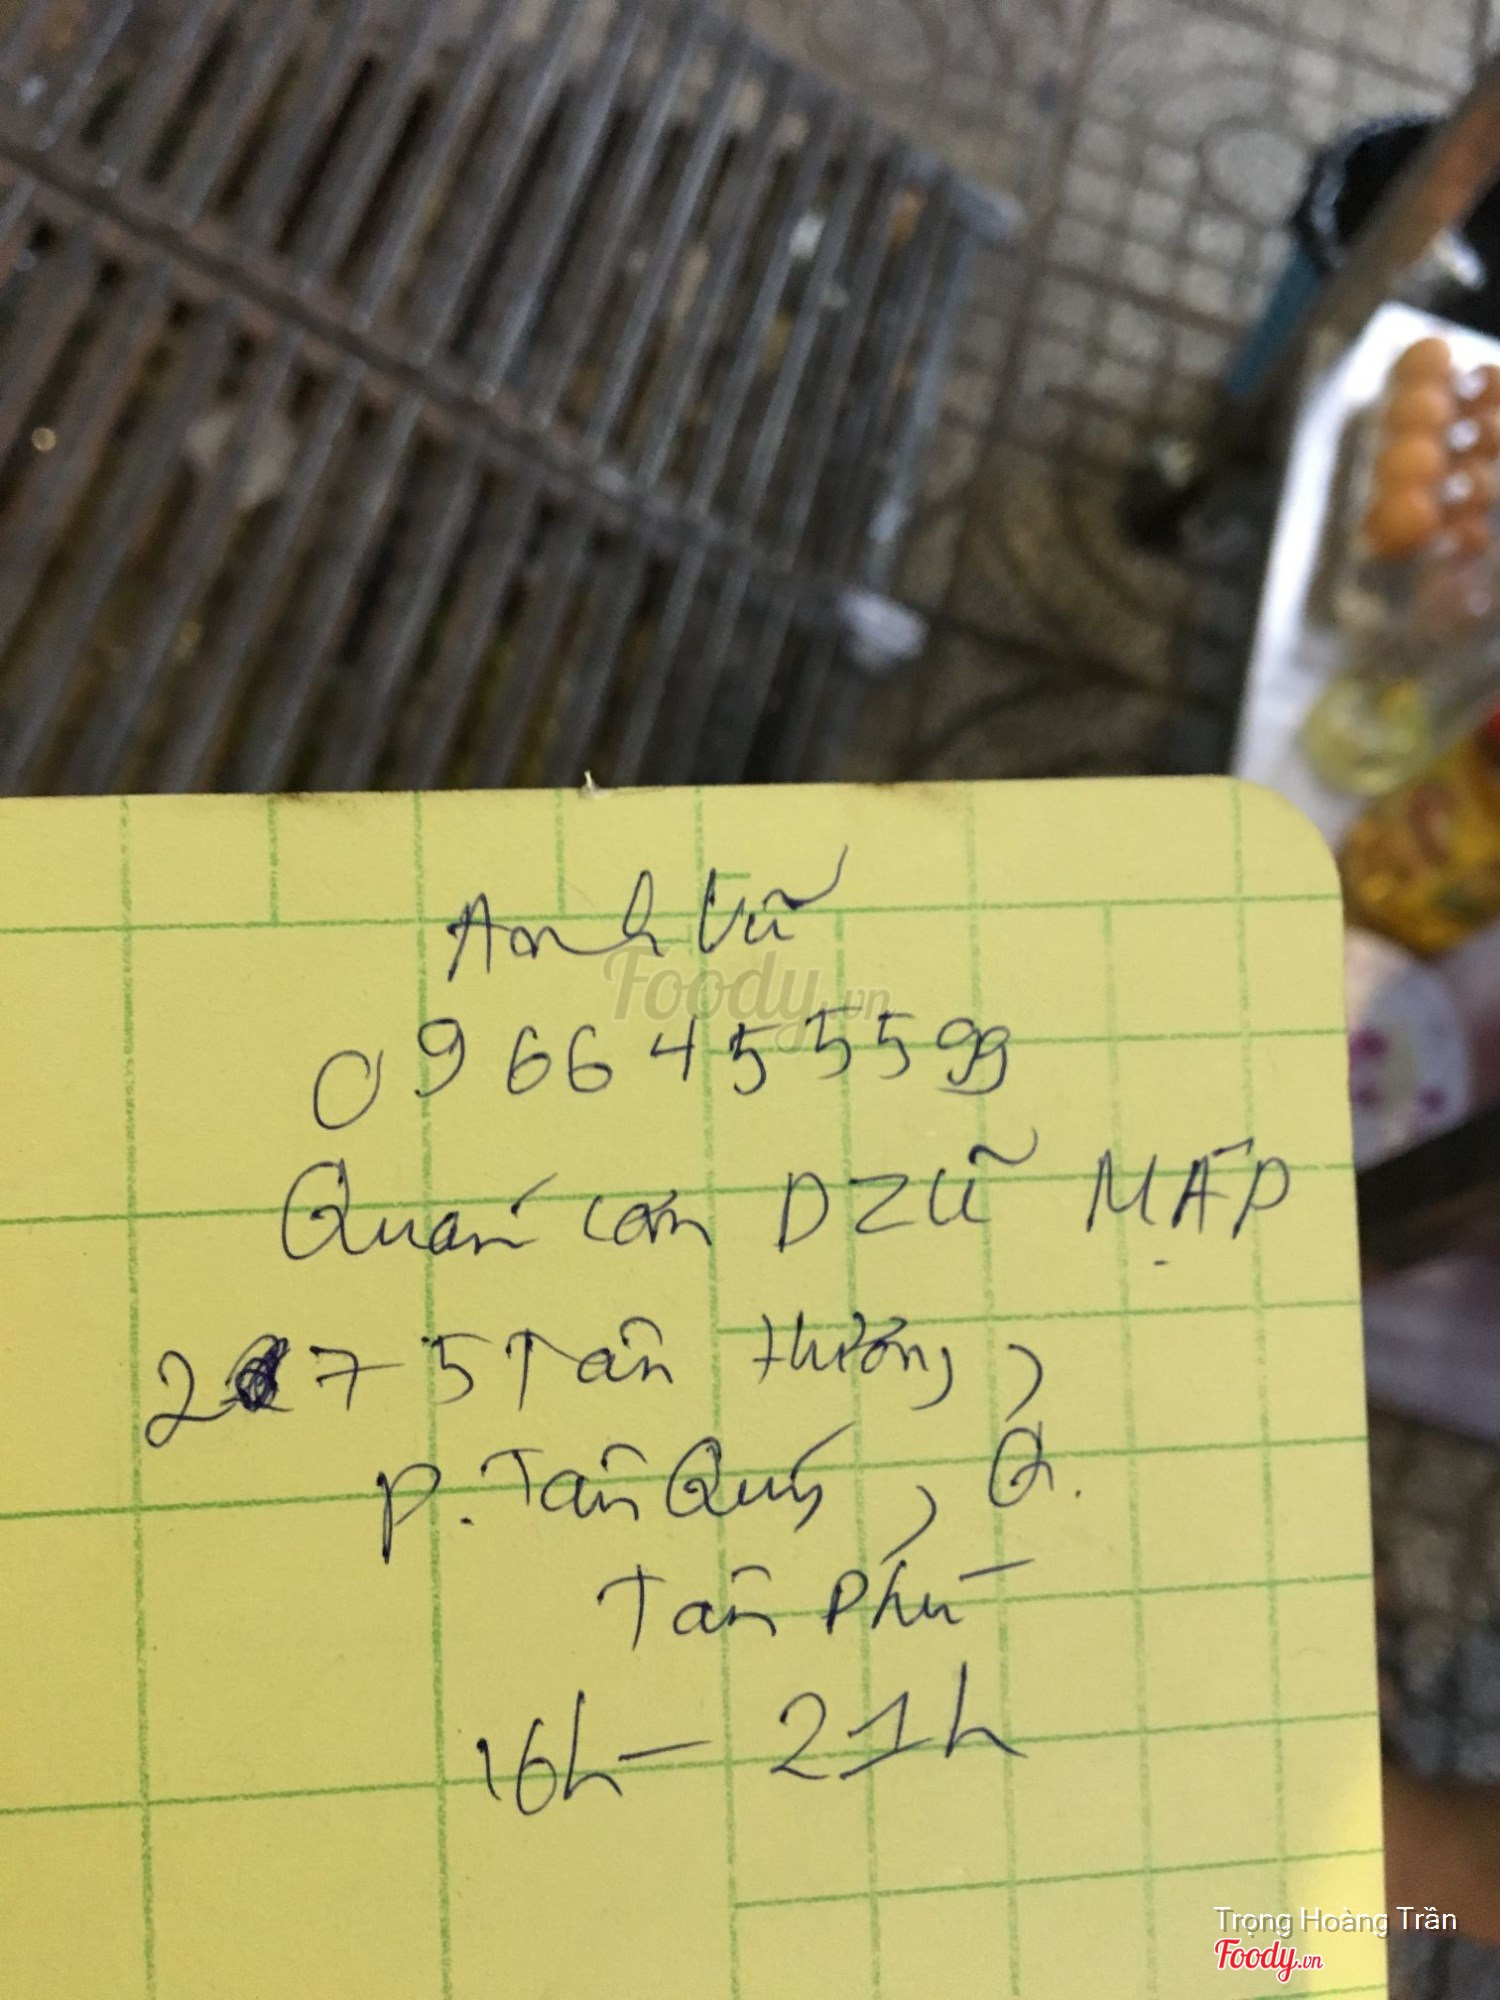 Anh Vũ
Foody.vn
0966455599
Quán cơm DZŨ MẬP
275 Tân Hương,
P. Tân Quý, Q.
Tân Phú
16h - 21h
Trọng Hoàng Trần
Foody.vn